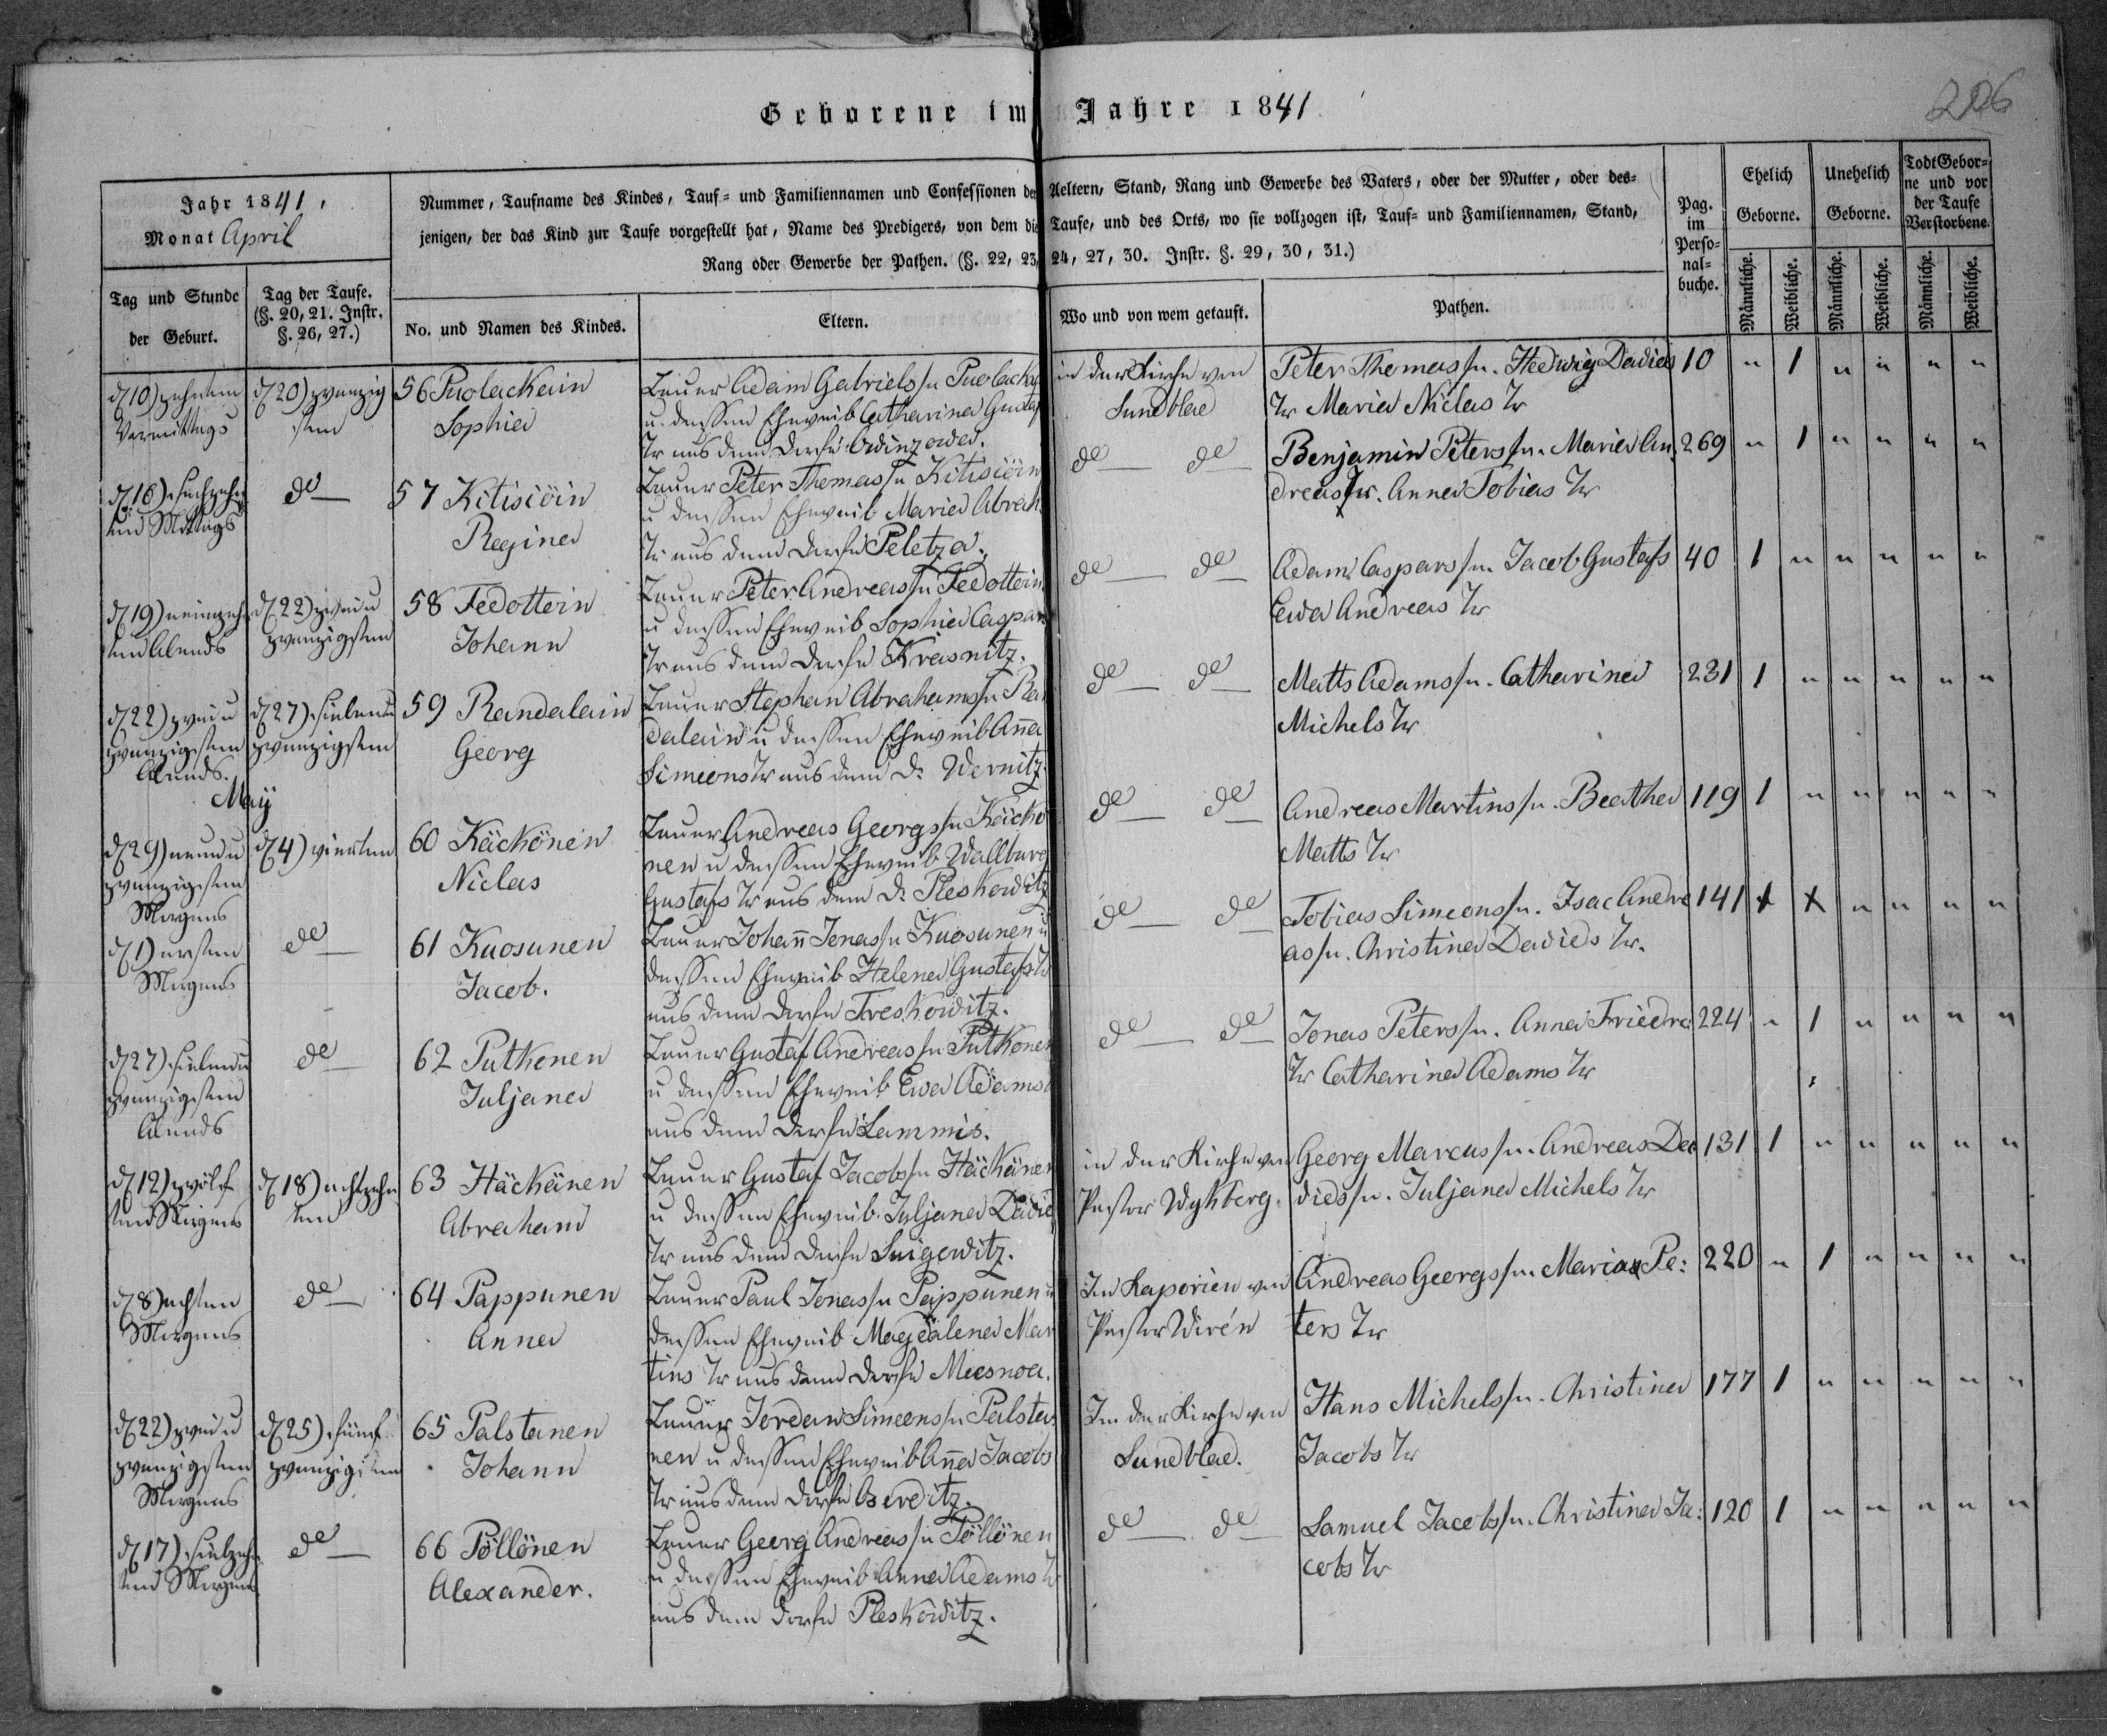 206
Geborene im Jahre 1841
Jahr 1841,
Monat April
Nummer, Taufname des Kindes, Tauf- und Familiennamen und Confessionen der Aeltern, Stand, Rang und Gewerbe des Vaters, oder der Mutter, oder des-
jenigen, der das Kind zur Taufe vorgestellt hat, Name des Predigers, von dem die Taufe, und des Orts, wo sie vollzogen ist, Tauf- und Familiennamen, Stand,
Rang oder Gewerbe der Pathen. (§. 22, 23, 24, 27, 30. Instr. §. 29, 30, 31.)
Pag.
im
Perso-
nal-
buche.
Ehelich
Geborne.
Unehelich
Geborne.
Todt Gebor-
ne und vor
der Taufe
Verstorbene.
Tag und Stunde
der Geburt.
Tag der Taufe.
(§. 20, 21. Instr.
§. 26, 27.)
No. und Namen des Kindes.
Eltern.
Wo und von wem getauft.
Pathen.
Männliche. Weibliche. Männliche. Weibliche. Männliche. Weibliche.
d(10) zehnten
Vormittags
d(20) zwanzig
sten
56 Puolackain
Sophia
Bauer Adam Gabriels sn Puolacka
u. dessen Eheweib Catharina Gustaf
Tr aus dem Dorfe
in der Kirche von
Sundblad
Peter Thomas sn. Hedwig Davids
Tr Maria Niclas Tr
10 " 1 " " " "
d(16) sechzehn
ten Mittags
do
57 Kitisiöin
Regina
Bauer Peter Thomas sn Kitisiöin
u dessen Eheweib Maria Abrah
Tr aus dem Dorfe Peletza.
do do
Benjamin Peters sn. Maria An
dreas Tr. Anna Tobias Tr
269 " 1 " " " "
d(19) neunzehn
ten Abends
d(22) zwei u
zwanzigsten
58 Fedottein
Johann
Bauer Peter Andreas sn Fedottein
u dessen Eheweib Sophia Caspar
Tr aus dem Dorfe Krasnitz.
do do
Adam Caspars sn. Jacob Gustafs
Ewa Andreas Tr
40 1 " " " " "
d(22) zwei u
zwanzigsten
Abends.
d(27) sieben u
zwanzigsten
59 Randalain
Georg
Bauer Stephan Abrahams sn Ran
dalain u dessen Eheweib Anna
Simeons Tr aus dem D: Wernitz.
do do
Matts Adams sn. Catharina
Michels Tr
231 1 " " " " "
May
d(29) neun u
zwanzigsten
Morgens
d(4) vierten
60 Käckönen
Niclas
Bauer Andreas Georgs sn Käckö
nen u dessen Eheweib Wallburg
Gustafs Tr aus dem D: Pleskowitz
do do
Andreas Martins sn. Beatha
Matts Tr
119 1 " " " " "
d(1) ersten
Morgens
do
61 Kuosunen
Jacob.
Bauer Johann Jonas sn Kuosunen u
dessen Eheweib Helena Gustafs Tr
aus dem Dorfe Treskowitz.
do do
Tobias Simeons sn. Isac Andre
as sn. Christina Davids Tr.
141 x x " " " "
d(27) sieben u
zwanzigsten
Abends
do
62 Putkonen
Juljana
Bauer Gustaf Andreas sn Putkonen
u dessen Eheweib Ewa Adams
aus dem Dorfe Lammis.
do do
Jonas Peters sn. Anna Friedr
Tr Catharina Adams Tr
224 " 1 " " " "
d(12) zwölf
ten Morgens
d(18) achtzehn
ten
63 Häckänen
Abraham
Bauer Gustaf Jacobs sn Häckänen
u dessen Eheweib Juljana David
Tr aus dem Dorfe Suigowitz.
in der Kirche von
Pastor Dykberg.
Georg Marcus sn. Andreas Da
vids sn. Juljana Michels Tr
131 1 " " " " "
d(8) achten
Morgens
do
64 Pappunen
Anna
Bauer Paul Jonas sn Pappunen u
dessen Eheweib Magdalena Mar
tins Tr aus dem Dorfe Miesnoa.
In Kaporien von
Pastor Wirén
Andreas Georgs sn. Maria Pe:
ters Tr
220 " 1 " " " "
d(22) zwei u
zwanzigsten
Morgens
d(25) fünf
zwanzigsten
65 Palstanen
Johann
Bauer Jordan Simeons sn Palsta
nen u dessen Eheweib Anna Jacobs
Tr aus dem Dorfe
In der Kirche von
Sundblad.
Hans Michels sn. Christina
Jacobs Tr
177 1 " " " " "
d(17) siebzehn
ten Morgens
do
66 Pöllönen
Alexander.
Bauer Georg Andreas sn Pöllönen
u dessen Eheweib Anna Adams Tr
aus dem Dorfe Pleskowitz.
do do
Samuel Jacobs sn. Christina Ja:
cobs Tr
120 1 " " " " "